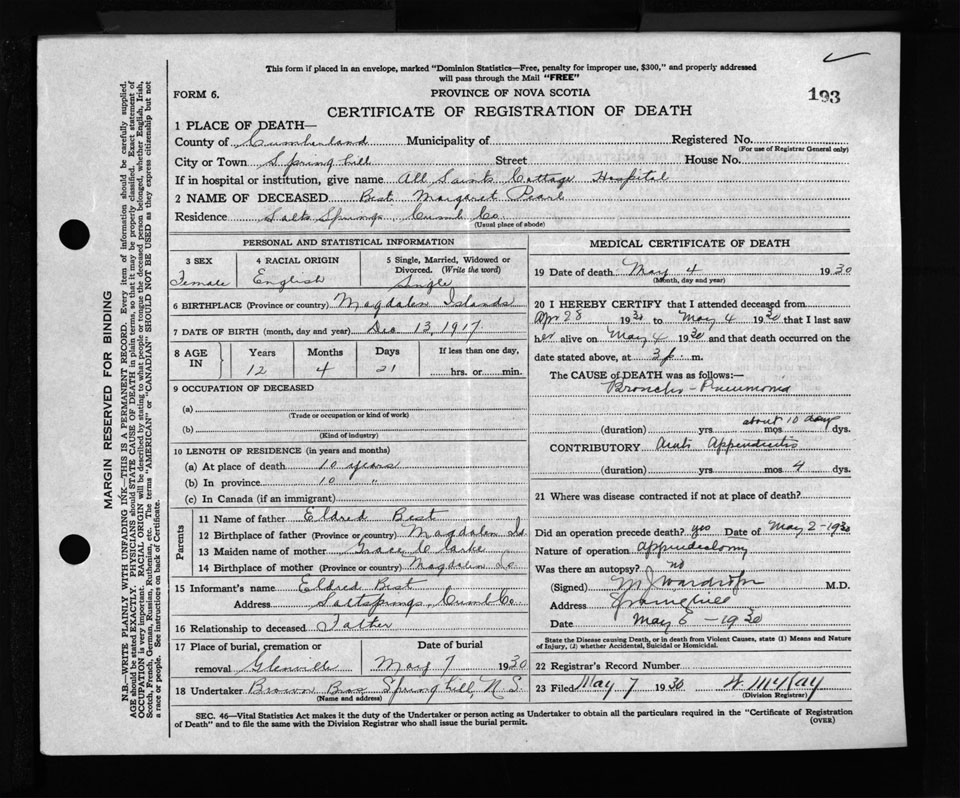 This form if placed in an envelope, marked "Dominion Statistics—Free, penalty for improper use, $300," and properly addressed
will pass through the Mail "FREE"
FORM 6.
PROVINCE OF NOVA SCOTIA
193
CERTIFICATE OF REGISTRATION OF DEATH
1 PLACE OF DEATH—
County of Cumberland Municipality of Registered No.
(For use of Registrar General only)
City or Town Spring hill Street House No.
If in hospital or institution, give name All Saints Cottage Hospital
2 NAME OF DECEASED Best Margaret Pearl
Residence Salt Springs, Cumb Co.
(Usual place of abode)
PERSONAL AND STATISTICAL INFORMATION
3 SEX 4 RACIAL ORIGIN 5 Single, Married, Widowed or
Divorced. (Write the word)
Female English Single
6 BIRTHPLACE (Province or country) Magdalen Islands
7 DATE OF BIRTH (month, day and year) Dec 13, 1917.
8 AGE IN Years Months Days If less than one day,
12 4 21 hrs. or min.
9 OCCUPATION OF DECEASED
(a)
(Trade or occupation or kind of work)
(b)
(Kind of industry)
10 LENGTH OF RESIDENCE (in years and months)
(a) At place of death 10 years
(b) In province 10 "
(c) In Canada (if an immigrant)
Parents
11 Name of father Eldred Best
12 Birthplace of father (Province or country) Magdalen Is
13 Maiden name of mother Grace Clarke
14 Birthplace of mother (Province or country) Magdalen Is
15 Informant's name Eldred Best
Address Saltsprings, Cumb Co.
16 Relationship to deceased Father
17 Place of burial, cremation or Date of burial
removal Glenville May 7 1930
18 Undertaker Brown Bros Spring hill, N.S.
(Name and address)
MEDICAL CERTIFICATE OF DEATH
19 Date of death May 4 1930
(Month, day and year)
20 I HEREBY CERTIFY that I attended deceased from
Apr 28 1930 to May 4 1930 that I last saw
her alive on May 4 1930 and that death occurred on the
date stated above, at 3 p. m.
The CAUSE of DEATH was as follows:—
Broncho-Pneumonia
about 10 days
(duration) yrs mos dys.
CONTRIBUTORY Acute Appendicitis
(duration) yrs mos 9 dys.
21 Where was disease contracted if not at place of death?
Did an operation precede death? yes Date of May 2-1930
Nature of operation Appendectomy
Was there an autopsy? no
(Signed) M J Wardrope M.D.
Address Springhill
Date May 6 - 1930
State the Disease causing Death, or in death from Violent Causes, state (1) Means and Nature
of Injury, (2) whether Accidental, Suicidal or Homicidal.
22 Registrar's Record Number
23 Filed May 7 1930 W McKay
(Division Registrar)
SEC. 46—Vital Statistics Act makes it the duty of the Undertaker or person acting as Undertaker to obtain all the particulars required in the "Certificate of Registration
of Death" and to file the same with the Division Registrar who shall issue the burial permit.
(OVER)
MARGIN RESERVED FOR BINDING
N.B.—WRITE PLAINLY WITH UNFADING INK—THIS IS A PERMANENT RECORD. Every item of information should be carefully supplied.
AGE should be stated EXACTLY. PHYSICIANS should STATE CAUSE OF DEATH in plain terms, so that it may be properly classified. Exact statement of
OCCUPATION is very important. RACIAL ORIGIN will be described by stating to what people or tongue the deceased person belonged, whether English, Irish,
Scotch, French, German, Russian, Ruthenian, etc. The terms "AMERICAN" or "CANADIAN" SHOULD NOT BE USED as they express citizenship but not
a race or people. See instructions on back of Certificate.